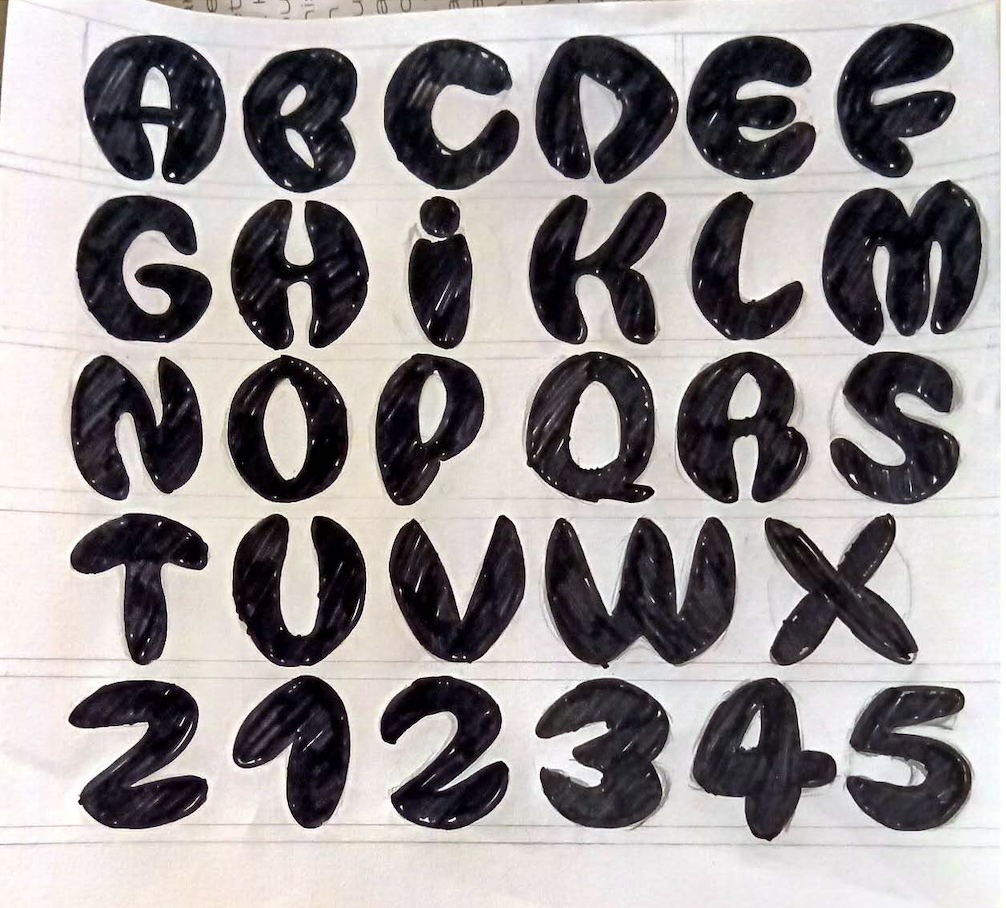 A B C D E F
G H i K L M
N O P Q R S
T U V W X
Z 1 2 3 4 5